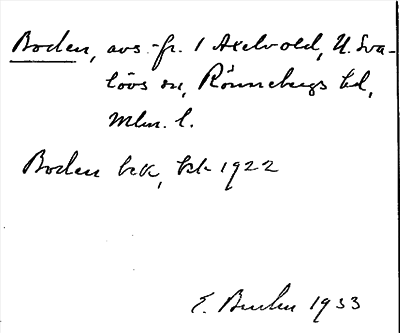 Boden, avs. fr. 1 Axelvold, N. Sva-
lövs sn, Rönnebergs hd,
Mlm. l.
Boden bek, kk 1922
E. 1933